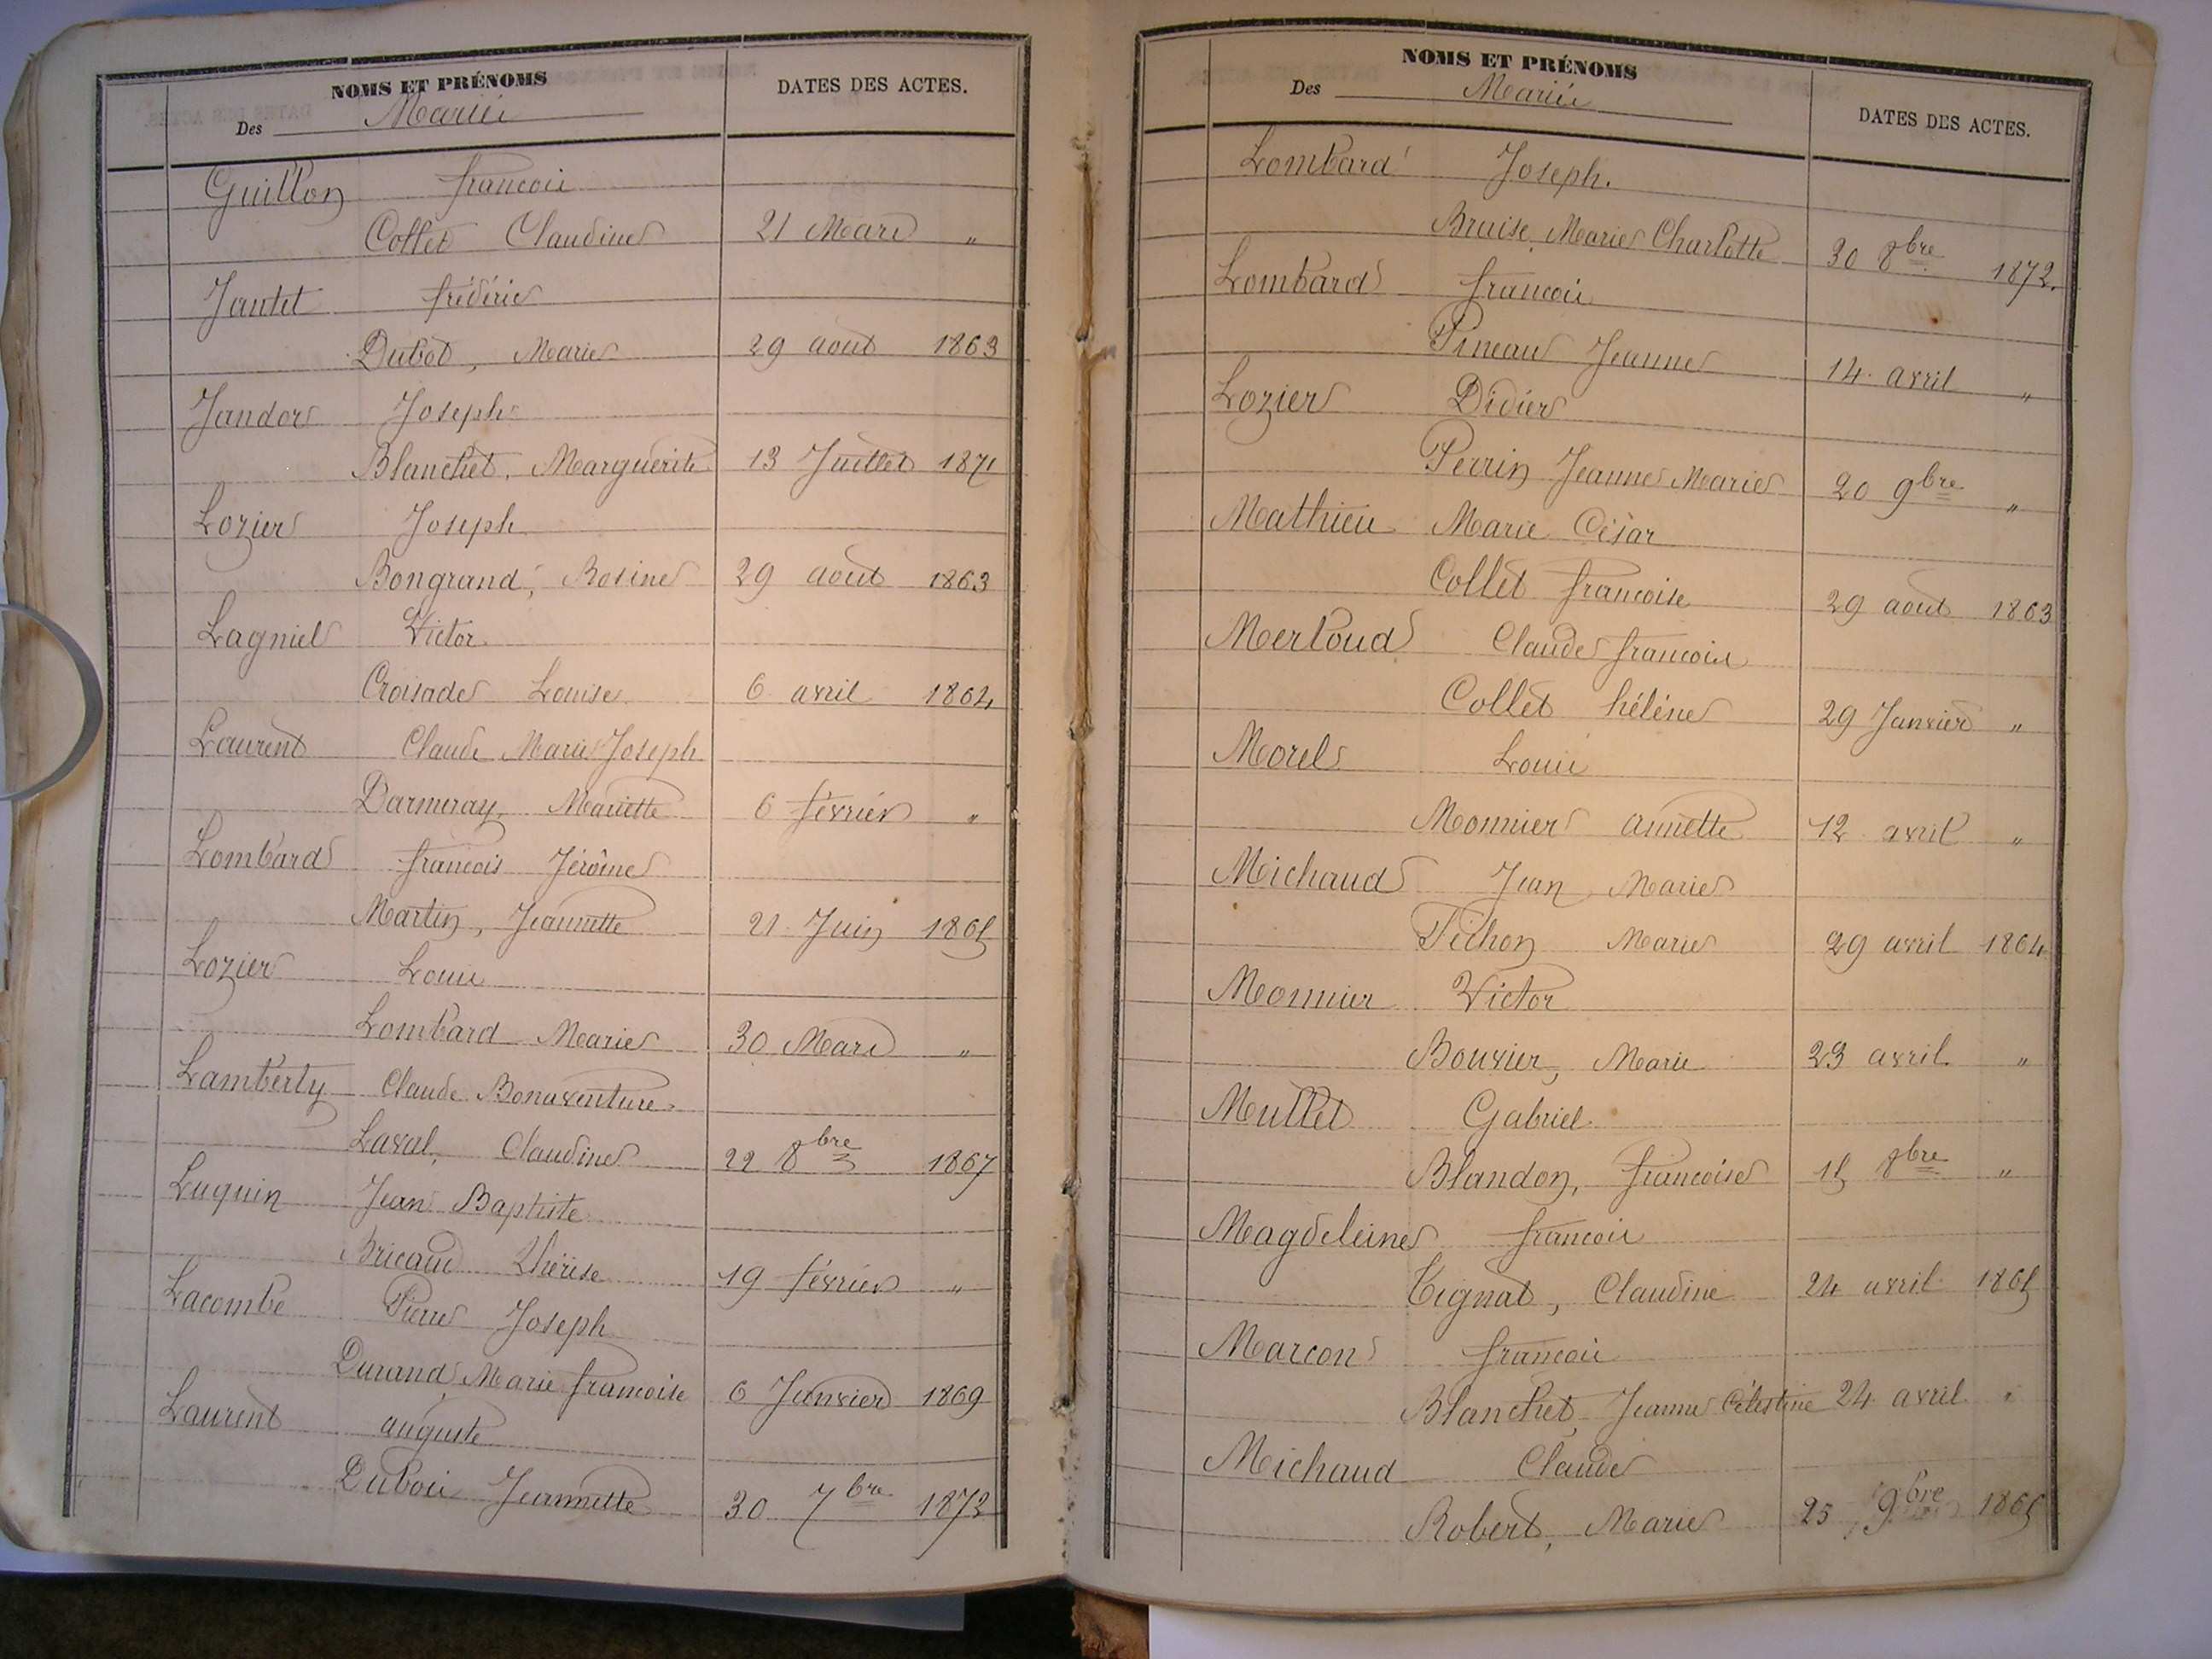 NOMS ET PRÉNOMS
Des Mariés
DATES DES ACTES.
Guillon françois
Collet Claudine 21 Mars "
Jantet frédéric
Dubot, Marie 29 août 1863
Jandor Joseph
Blanchet, Marguerite 13 Juillet 1871
Lozier Joseph
Bongrand, Rosine 29 août 1863
Lagniel Victor
Croisade Louise 6 avril 1864
Laurent Claude Marie Joseph
Darmeray, Mariette 6 février "
Lombard françois Jérôme
Martin, Jeannette 21 Juin 1865
Lozier Louis
Lombard Marie 30 Mars "
Lamberty Claude Bonaventure
Laval, Claudine 22 8bre 1867
Luquin Jean Baptiste
Bricaud Thérèse 19 février "
Lacombe Pierre Joseph
Durand Marie françoise 6 Janvier 1869
Laurent auguste
Dubois Jeannette 30 7bre 1872
NOMS ET PRÉNOMS
Des Mariés
DATES DES ACTES.
Lombard Joseph.
Braise, Marie Charlotte 30 8bre 1872.
Lombard françois
Pineau Jeanne 14 avril "
Lozier Didier
Perrin Jeanne Marie 20 9bre "
Mathieu Marie César
Collet françoise 29 août 1863
Merloud Claude françois
Collet hélène 29 Janvier "
Morel Louis
Monnier annette 12 avril "
Michaud Jean Marie
Pichon Marie 29 avril 1864
Monnier Victor
Bouvier, Marie 23 avril "
Mullet Gabriel
Blandon, françoise 15 8bre "
Magdeleine françois
Tignat, Claudine 24 avril 1865
Marcon françois
Blanchet, Jeanne Célestine 24 avril "
Michaud Claude
Robert, Marie 25 9bre 1865